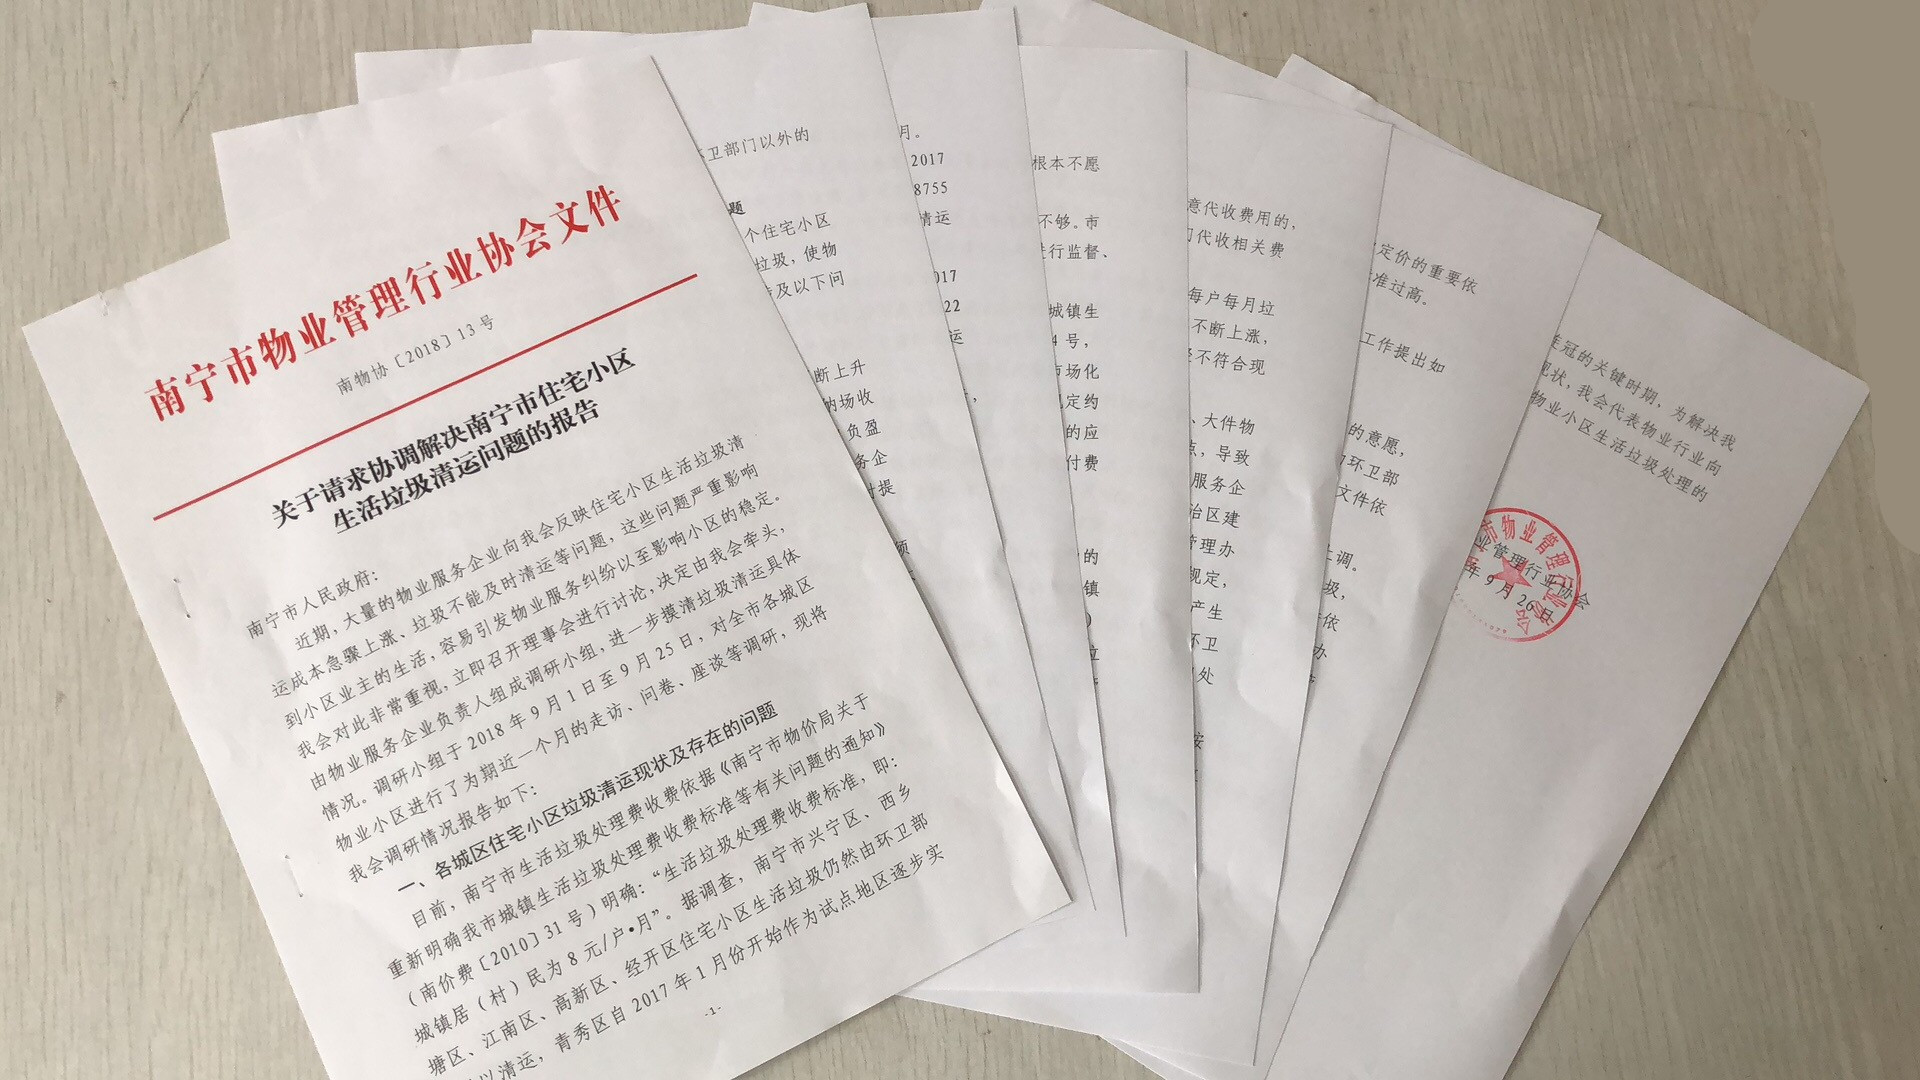 南宁市物业管理行业协会文件
南物协〔2018〕13号
关于请求协调解决南宁市住宅小区
生活垃圾清运问题的报告
南宁市人民政府：
近期，大量的物业服务企业向我会反映住宅小区生活垃圾清
运成本急骤上涨、垃圾不能及时清运等问题，这些问题严重影响
到小区业主的生活，容易引发物业服务纠纷以至影响小区的稳定。
我会对此非常重视，立即召开理事会进行讨论，决定由我会牵头，
由物业服务企业负责人组成调研小组，进一步摸清垃圾清运具体
情况。调研小组于2018年9月1日至9月25日，对全市各城区
物业小区进行了为期近一个月的走访、问卷、座谈等调研，现将
我会调研情况报告如下：
一、各城区住宅小区垃圾清运现状及存在的问题
目前，南宁市生活垃圾处理费收费依据《南宁市物价局关于
重新明确我市城镇生活垃圾处理费收费标准等有关问题的通知》
（南价费〔2010〕31号）明确：“生活垃圾处理费收费标准，即：
城镇居（村）民为8元/户•月”。据调查，南宁市兴宁区、西乡
塘区、江南区、高新区、经开区住宅小区生活垃圾仍然由环卫部
以清运，青秀区自2017年1月份开始作为试点地区逐步实
-1-
卫部门以外的
题
个住宅小区
垃圾，使物
及以下问
断上升
纳场收
负盈
务企
时提
月。
2017
8755
清运
017
22
运
根本不愿
不够。市
行监督、
城镇生
4号，
市场化
规定约
的应
付费
的
镇
意代收费用的，
门代收相关费
每户每月垃
不断上涨，
不符合现
、大件物
点，导致
服务企
治区建
管理办
规定，
产生
环卫
处
定价的重要依
准过高。
工作提出如
的意愿，
环卫部
文件依
上调。
圾，
依
办
连冠的关键时期，为解决我
现状，我会代表物业行业向
物业小区生活垃圾处理的
业管理行业协会
年9月26日
市物业管理行业协会